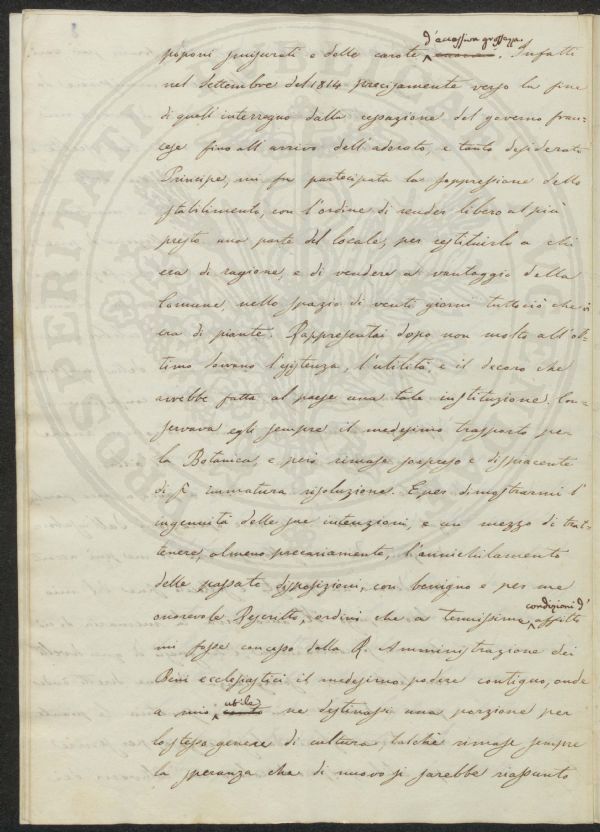 d'eccessiva grossezza
poponi smisurati e delle carote. Infatti
nel Settembre del 1814 precisamente verso la fine
di quell'interregno dalla cessazione del governo fran-
cese fino all'arrivo dell'adorato, e tanto desiderato
Principe, mi fu partecipata la soppressione dello
stabilimento, con l'ordine di render libero al più
presto una parte del locale, per restituirlo a chi
era di ragione, e di vendere a vantaggio della
Comune, nello spazio di venti giorni tuttociò che vi
era di piante. Rappresentai dopo non molto all'ot-
timo Sovrano l'esistenza, l'utilità, e il decoro che
avrebbe fatta al paese una tale instituzione. Con-
servava egli sempre il medesimo trasporto per
la Botanica, e però rimase sorpreso e dispiacente
di sì immatura risoluzione. E per dimostrarmi l'
ingenuità delle sue intenzioni, e un mezzo di trat-
tenere, almeno precariamente, l'annichilamento
delle passate disposizioni, con benigno e per me
onorevole Rescritto, ordinò che a tenuissime condizioni d'
affitto
mi fosse concesso dalla R. Amministrazione dei
Beni ecclesiastici il medesimo podere contiguo, onde
utile
a mio ne destinassi una porzione per
lo stesso genere di cultura, talchè rimase sempre
la speranza che di nuovo si sarebbe riassunto